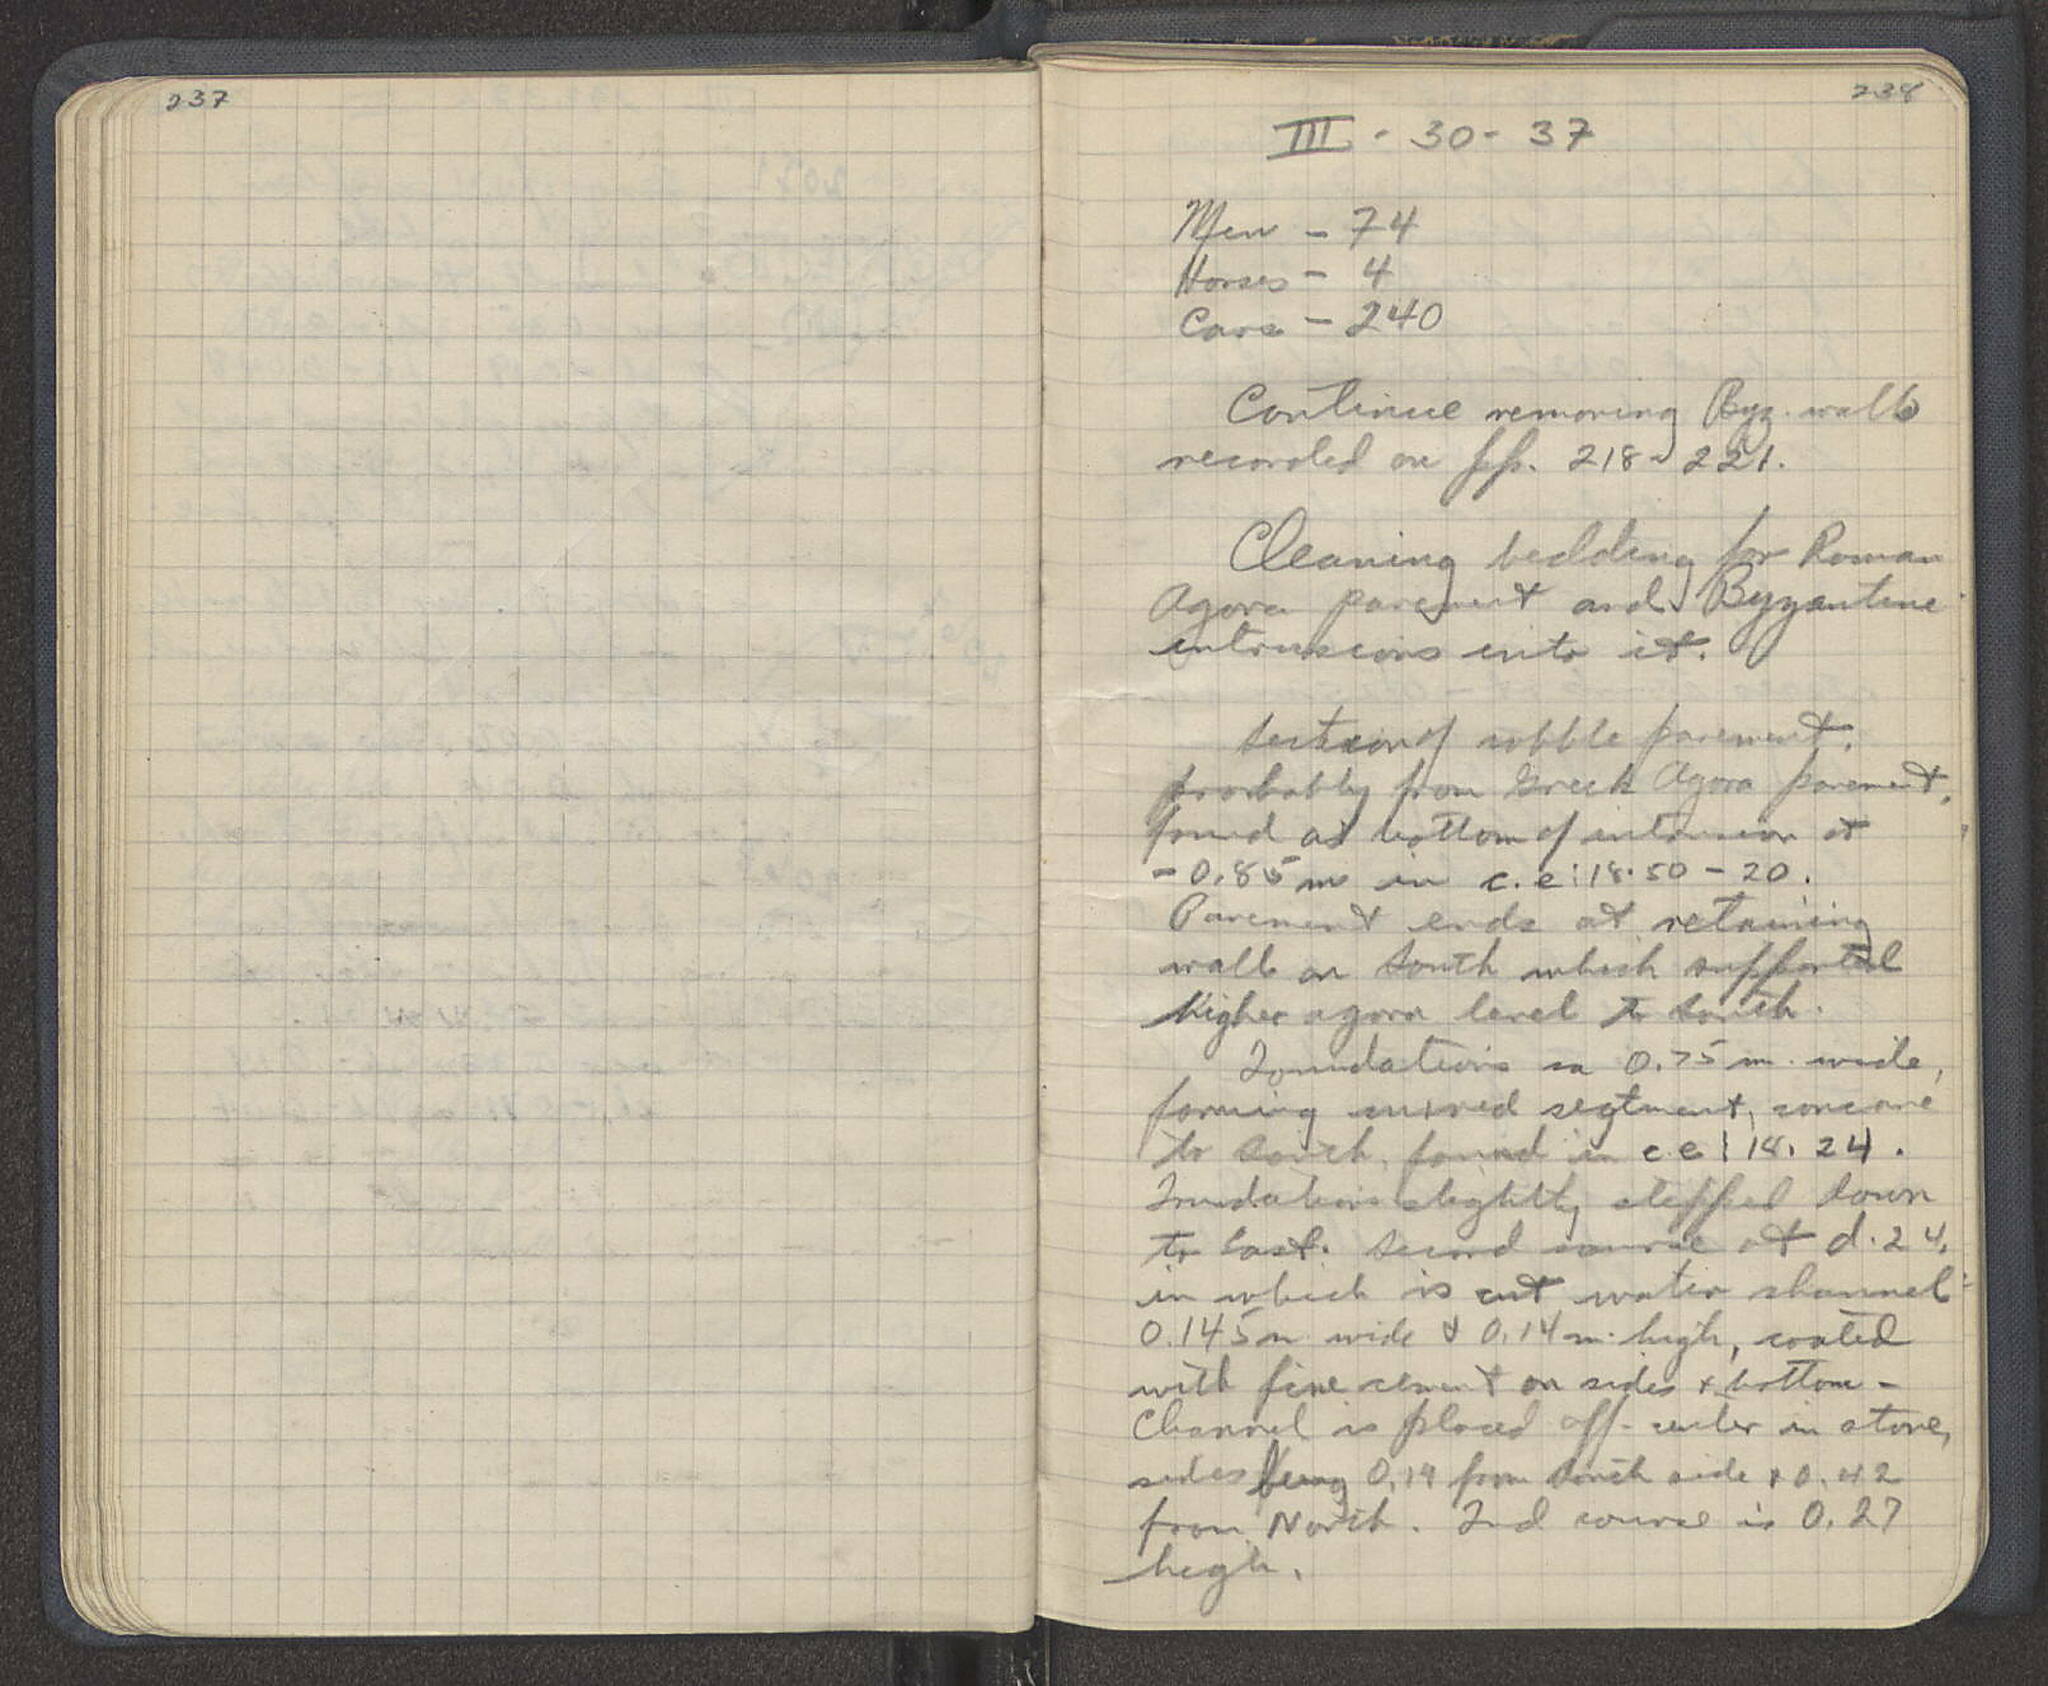 237
238
III - 30 - 37
Men - 74
Horses - 4
Cars - 240
Continue removing Byz. walls
recorded on pp. 218 - 221.
Cleaning bedding for Roman
Agora pavement and Byzantine
intrusions into it.
Section of cobble pavement,
probably from Greek Agora pavement,
found at bottom of intrusion at
- 0.85 m in c.e:18.50 - 20.
Pavement ends at retaining
wall on South which supported
higher agora level to South.
Foundations ca 0.75 m. wide,
forming curved segtment, concave
to South, found in c.e:18.24.
Foundations slightly stepped down
to East. Second course at d.24,
in which is cut water channel
0.145 m wide & 0.14 m. high, coated
with fine cement on sides & bottom -
Channel is placed off-center in stone,
sides being 0.19 from South side & 0.42
from North. 2nd course is 0.27
high.